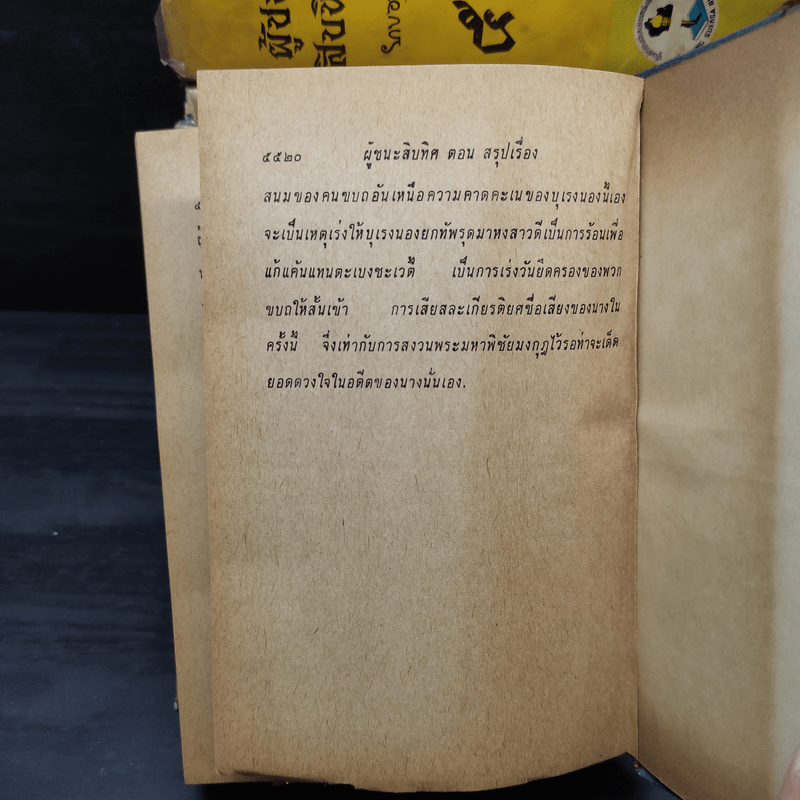 ผู้ชนะ
สิบทิศ
๕๕๒๐ ผู้ชนะสิบทิศ ตอน สรุปเรื่อง
สนมของคนขบถอันเหนือความคาดคะเนของบุเรงนองนี้เอง
จะเป็นเหตุเร่งให้บุเรงนองยกทัพรุดมาหงสาวดีเป็นการร้อนเพื่อ
แก้แค้นแทนตะเบงชะเวตี้ เป็นการเร่งวันยึดครองของพวก
ขบถให้สั้นเข้า การเสียสละเกียรติยศชื่อเสียงของนางใน
ครั้งนี้ จึงเท่ากับการสงวนพระมหาพิชัยมงกุฎไว้รอท่าจะเด็ด
ยอดดวงใจในอดีตของนางนั่นเอง.